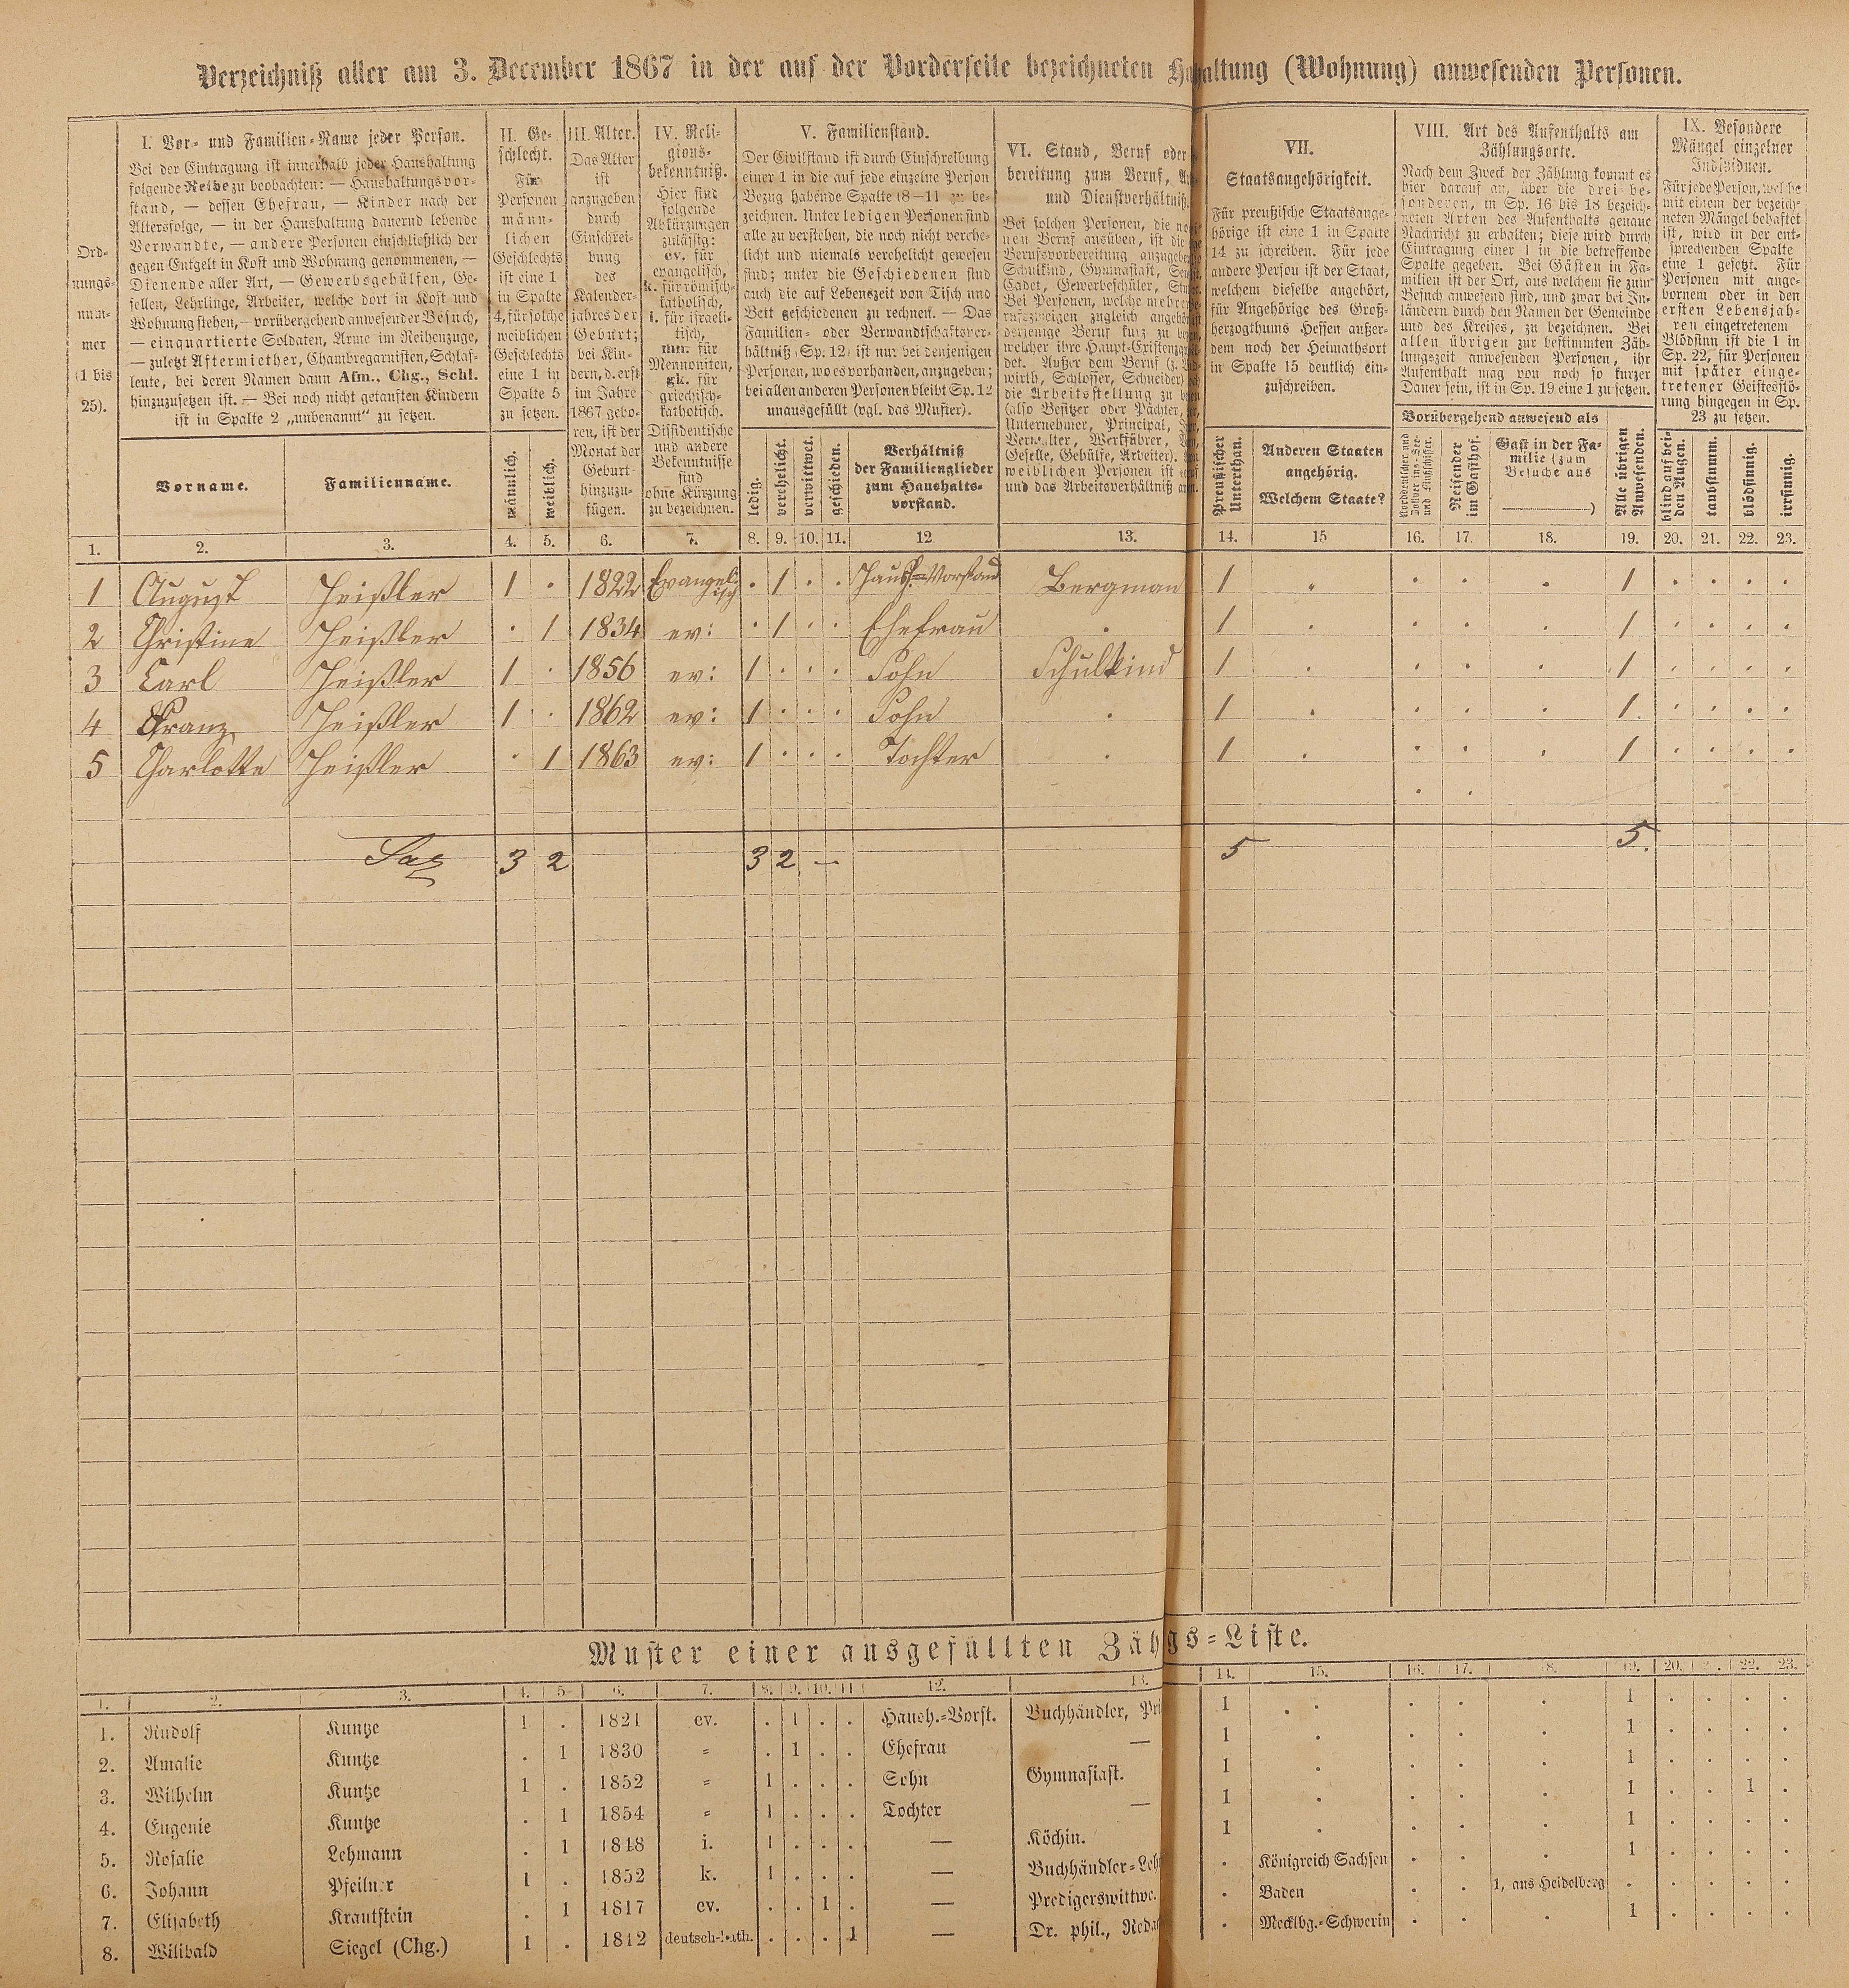 Verzeichniß aller am 3. December 1867 in der auf der Vorderseite bezeichneten Ha haltung (Wohnung) anwesenden Personen.
Ord-
nungs-
num-
mer
(1 bis
25).
I. Vor- und Familien-Name jeder Person.
Bei der Eintragung ist innerhalb jeder Haushaltung
folgende Reihe zu beobachten: — Haushaltungsvor-
stand, — dessen Ehefrau, — Kinder nach der
Altersfolge, — in der Haushaltung dauernd lebende
Verwandte, — andere Personen einschließlich der
gegen Entgelt in Kost und Wohnung genommenen, —
Dienende aller Art, — Gewerbsgehülfen, Ge-
sellen, Lehrlinge, Arbeiter, welche dort in Kost und
Wohnung stehen, — vorübergehend anwesender Besuch,
— einquartierte Soldaten, Arme im Reihenzuge,
— zuletzt Aftermiether, Chambregarnisten, Schlaf-
leute, bei deren Namen dann Afm., Chg., Schl.
hinzuzusetzen ist. — Bei noch nicht getauften Kindern
ist in Spalte 2 „unbenannt" zu setzen.
Vorname.
Familienname.
II. Ge-
schlecht.
Für
Personen
männ-
lichen
Geschlechts
ist eine 1
in Spalte
4, für solche
weiblichen
Geschlechts
eine 1 in
Spalte 5
zu setzen.
männlich.
weiblich.
III. Alter.
Das Alter
ist
anzugeben
durch
Einschrei-
bung
des
Kalender-
jahres der
Geburt;
bei Kin-
dern, d. erst
im Jahre
1867 gebo-
ren, ist der
Monat der
Geburt
hinzuzu-
fügen.
IV. Reli-
gions-
bekenntniß.
Hier sind
folgende
Abkürzungen
zulässig:
ev. für
evangelisch,
k. für römisch-
katholisch,
i. für israeli-
tisch,
mn. für
Mennoniten,
gk. für
griechisch-
katholisch.
Dissidentische
und andere
Bekenntnisse
sind
ohne Kürzung
zu bezeichnen.
V. Familienstand.
Der Civilstand ist durch Einschreibung
einer 1 in die auf jede einzelne Person
Bezug habende Spalte (8—11) zu be-
zeichnen. Unter ledigen Personen sind
alle zu verstehen, die noch nicht verehe-
licht und niemals verehelicht gewesen
sind; unter die Geschiedenen sind
auch die auf Lebenszeit von Tisch und
Bett geschiedenen zu rechnen. — Das
Familien- oder Verwandtschaftsver-
hältniß (Sp. 12) ist nur bei denjenigen
Personen, wo es vorhanden, anzugeben;
bei allen anderen Personen bleibt Sp. 12
unausgefüllt (vgl. das Muster).
ledig.
verehelicht.
verwittwet.
geschieden.
Verhältniß
der Familienglieder
zum Haushalts-
vorstand.
VI. Stand, Beruf oder
bereitung zum Beruf,
und Dienstverhältniß.
Bei solchen Personen, die
nen Beruf ausüben, ist die
Berufsvorbereitung
Schulkind, Gymnasiast,
Cadet, Gewerbeschüler,
Bei Personen, welche
rufszweigen zugleich
derjenige Beruf kurz zu
welcher ihre
det. Außer dem Beruf (z.
wirth, Schlosser, Schneider)
die Arbeitsstellung zu
(also Besitzer oder Pächter,
Unternehmer, Principal,
Verwalter, Werkführer,
Geselle, Gehülfe, Arbeiter).
weiblichen Personen ist
und das Arbeitsverhältniß
VII.
Staatsangehörigkeit.
Für preußische Staatsange-
hörige ist eine 1 in Spalte
14 zu schreiben. Für jede
andere Person ist der Staat,
welchem dieselbe angehört,
für Angehörige des Groß-
herzogthums Hessen außer-
dem noch der Heimathsort
in Spalte 15 deutlich ein-
zuschreiben.
Preußischer
Unterthan.
Anderen Staaten
angehörig.
Welchem Staate?
VIII. Art des Aufenthalts am
Zählungsorte.
Nach dem Zweck der Zählung kommt es
hier darauf an, über die drei be-
sonderen, in Sp. 16 bis 18 bezeich-
neten Arten des Aufenthalts genaue
Nachricht zu erhalten; diese wird durch
Eintragung einer 1 in die betreffende
Spalte gegeben. Bei Gästen in Fa-
milien ist der Ort, aus welchem sie zum
Besuch anwesend sind, und zwar bei In-
ländern durch den Namen der Gemeinde
und des Kreises, zu bezeichnen. Bei
allen übrigen zur bestimmten Zäh-
lungszeit anwesenden Personen, ihr
Aufenthalt mag von noch so kurzer
Dauer sein, ist in Sp. 19 eine 1 zu setzen.
Vorübergehend anwesend als
Reisender
im Gasthof.
Gast in der Fa-
milie (zum
Besuche aus
)
Alle übrigen
Anwesenden.
IX. Besondere
Mängel einzelner
Individuen.
Für jede Person, welche
mit einem der bezeich-
neten Mängel behaftet
ist, wird in der ent-
sprechenden Spalte
eine 1 gesetzt. Für
Personen mit ange-
bornem oder in den
ersten Lebensjah-
ren eingetretenem
Blödsinn ist die 1 in
Sp. 22, für Personen
mit später einge-
tretener Geistesstö-
rung hingegen in Sp.
23 zu setzen.
blind auf bei-
den Augen.
taubstumm.
blödsinnig.
irrsinnig.
1. 2. 3. 4. 5. 6. 7. 8. 9. 10. 11. 12 13. 14. 15 16. 17. 18. 19. 20. 21. 22. 23.
1 August Heißler 1 . 1822 Evangelisch . 1 . . Haush=Vorstand Bergman 1 . . . . 1 . . . .
2 Christine Heißler . 1 1834 ev: . 1 . . Ehefrau . 1 . . . . 1 . . . .
3 Carl Heißler 1 . 1856 ev: 1 . . . Sohn Schulkind 1 . . . . 1 . . . .
4 Franz Heißler 1 . 1862 ev: 1 . . . Sohn . 1 . . . . 1. . . . .
5 Charlotte Heißler . 1 1863 ev: 1 . . . Tochter . 1 . . . . 1 . . . .
3 2 3 2 — 5 5.
Muster einer ausgefüllten Zäh gs=Liste.
1. 2. 3. 4. 5. 6. 7. 8. 9. 10. 11 12. 13. 14. 15. 16. 17. 18. 19. 20. 21. 22. 23.
1. Rudolf Kuntze 1 . 1821 ev. . 1 . . Haush.=Vorst. Buchhändler, Pri 1 . . . . 1 . . . .
2. Amalie Kuntze . 1 1830 = . 1 . . Ehefrau — 1 . . . . 1 . . . .
3. Wilhelm Kuntze 1 . 1852 = 1 . . . Sohn Gymnasiast. 1 . . . . 1 . . . .
4. Eugenie Kuntze . 1 1854 = 1 . . . Tochter — 1 . . . . 1 . . 1 .
5. Rosalie Lehmann . 1 1848 i. 1 . . . — Köchin. 1 . . . . 1 . . . .
6. Johann Pfeilner 1 . 1852 k. 1 . . . — Buchhändler=Leh . Königreich Sachsen . . . 1 . . . .
7. Elisabeth Krautstein . 1 1817 ev. . . 1 . — Predigerswittwe. . Baden . . 1, aus Heidelberg . . . . .
8. Wilibald Siegel (Chg.) 1 . 1812 deutsch-kath. . . . 1 — Dr. phil., Reda . Mecklbg.=Schwerin . . . 1 . . . .